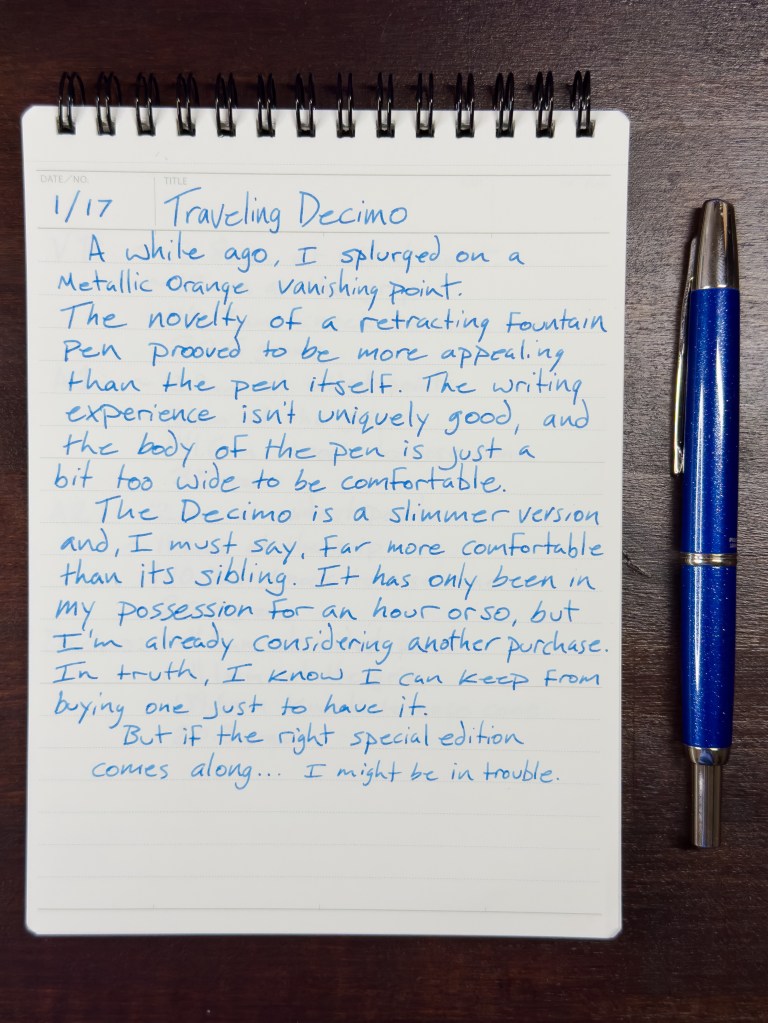 DATE/NO.
TITLE
1/17
Traveling Decimo
A while ago, I splurged on a
Metallic Orange vanishing point.
The novelty of a retracting Fountain
Pen prooved to be more appealing
than the pen itself. The writing
experience isn't uniquely good, and
the body of the pen is just a
bit too wide to be comfortable.
The Decimo is a slimmer version
and, I must say, far more comfortable
than its sibling. It has only been in
my possession for an hour or so, but
I'm already considering another purchase.
In truth, I know I can keep from
buying one just to have it.
But if the right special edition
comes along... I might be in trouble.